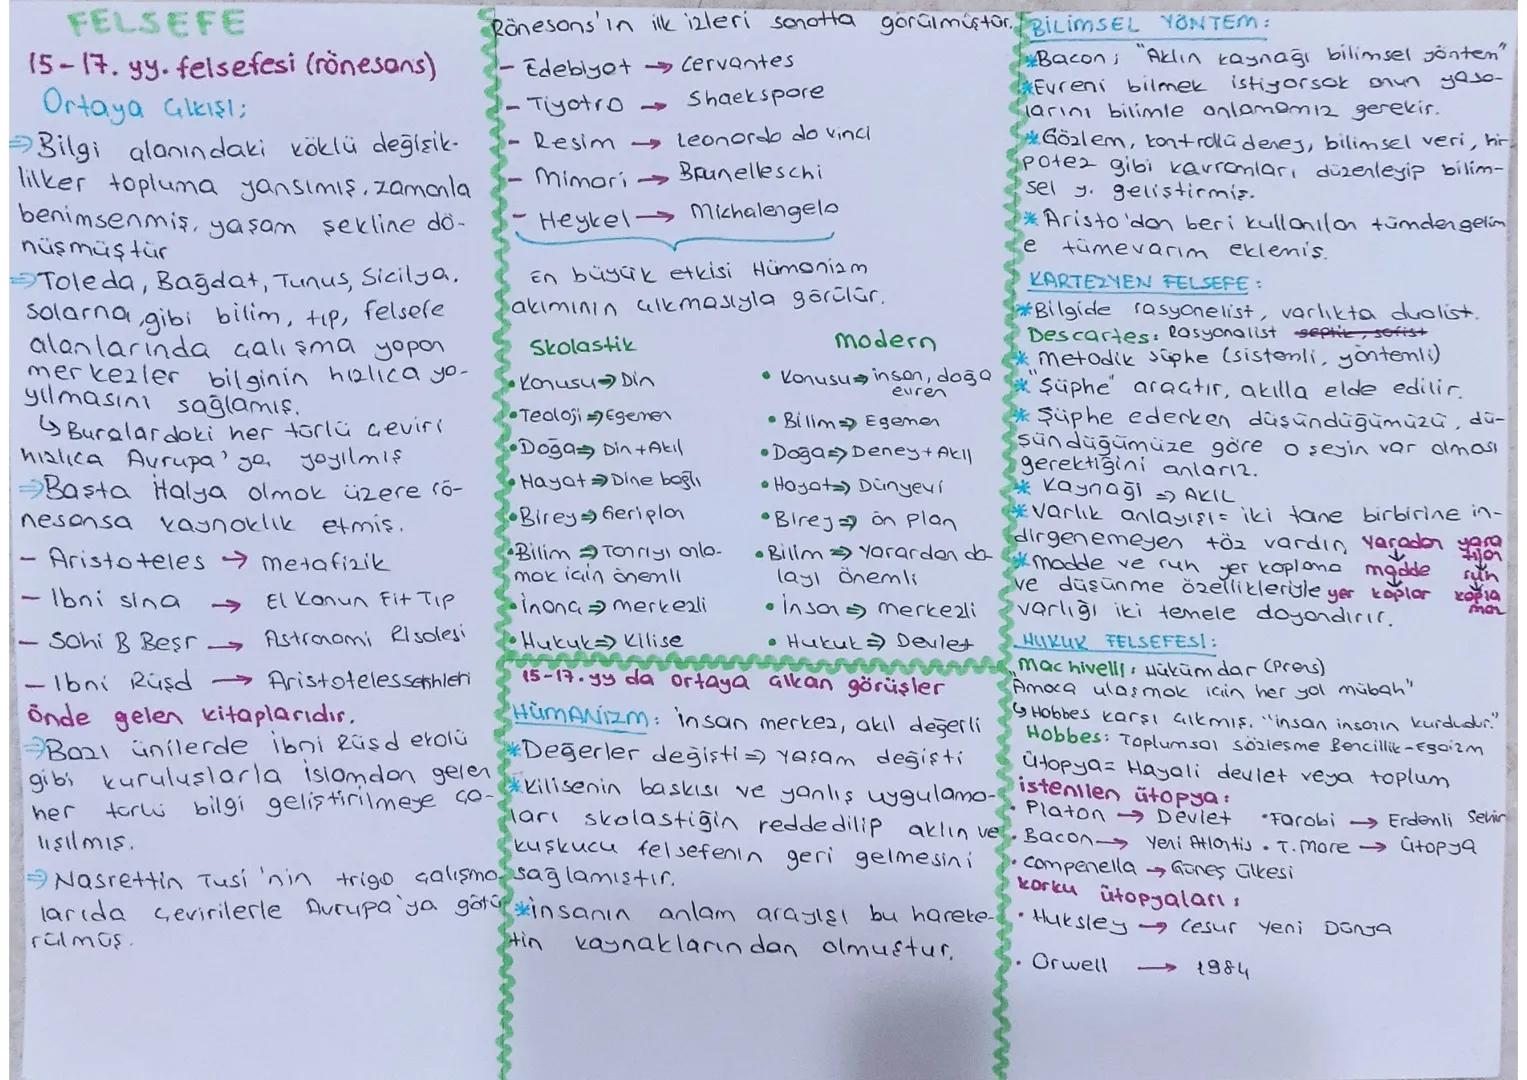 FELSEFE
15-17. yy. felsefesi (rönesans)
Ortaya Çıkışı;
⇒ Bilgi alanındaki köklü değişik-
lilker topluma yansımış, zamanla
benimsenmiş, yaşam şekline dö-
nüşmüştür
⇒ Toleda, Bağdat, Tunus, Sicilya,
Solarna gibi bilim, tıp, felsefe
alanlarında çalışma yapan
merkezler bilginin hızlıca ya-
yılmasını sağlamış.
↳ Buralardaki her türlü çeviri
hızlıca Avrupa'ya yayılmış
⇒ Başta İtalya olmak üzere rö-
nesansa kaynaklık etmiş.
- Aristoteles → metafizik
- İbni sina → El Kanun Fit Tıp
- Sahi B Beşr → Astronomi Risalesi
- İbni Rüşd → Aristoteles serhleri
önde gelen kitaplarıdır.
⇒ Bazı ünilerde ibni Rüşd ekolü
gibi kuruluşlarla islamdan gelen
her türlü bilgi geliştirilmeye ça-
lışılmış.
⇒ Nasrettin Tusi'nin trigo çalışma-
larıda çevirilerle Avrupa'ya götü-
rülmüş.
Rönesans'ın ilk izleri sanatta görülmüştür.
- Edebiyat → Cervantes
- Tiyatro → Shaekspare
- Resim → Leonardo da vinci
- Mimari → Brunelleschi
- Heykel → Michalengelo
En büyük etkisi Hümanizm
akımının çıkmasıyla görülür.
Skolastik
• Konusu ⇒ Din
• Teoloji ⇒ Egemen
• Doğa ⇒ Din + Akıl
• Hayat ⇒ Dine bağlı
• Birey ⇒ Geri plan
• Bilim ⇒ Tanrıyı anla-
mak için önemli
• inanç ⇒ merkezli
• Hukuk ⇒ Kilise
modern
• Konusu ⇒ insan, doğa
evren
• Bilim ⇒ Egemen
• Doğa ⇒ Deney + Akıl
• Hayat ⇒ Dünyevi
• Birey ⇒ ön plan
• Bilim ⇒ Yarardan do-
layı önemli
• insan ⇒ merkezli
• Hukuk ⇒ Devlet
15-17. yy da ortaya çıkan görüşler
HÜMANİZM: insan merkez, akıl değerli
* Değerler değişti ⇒ Yaşam değişti
* Kilisenin baskısı ve yanlış uygulama-
ları skolastiğin reddedilip aklın ve
kuşkucu felsefenin geri gelmesini
sağlamıştır.
* insanın anlam arayışı bu hareke-
tin kaynaklarından olmuştur.
BİLİMSEL YÖNTEM:
* Bacon; "Aklın kaynağı bilimsel yöntem"
* Evreni bilmek istiyorsak onun yasa-
larını bilimle anlamamız gerekir.
* Gözlem, kontrollü deney, bilimsel veri, hi-
potez gibi kavramları düzenleyip bilim-
sel y. geliştirmiş.
* Aristo'dan beri kullanılan tümdengelim
e tümevarım eklemiş.
KARTEZYEN FELSEFE:
* Bilgide rasyonelist, varlıkta dualist.
Descartes: Rasyonalist septik, sofist
* metodik şüphe (sistemli, yöntemli)
* "Şüphe" araçtır, akılla elde edilir.
* Şüphe ederken düşündüğümüzü, dü-
şündüğümüze göre o şeyin var olması
gerektiğini anlarız.
* Kaynağı ⇒ AKIL
* Varlık anlayışı = iki tane birbirine in-
dirgenemeyen töz vardır,
* madde ve ruh yer kaplama
ve düşünme özellikleriyle
varlığı iki temele dayandırır.
Yaradan yara
tılan
madde ruh
yer kaplar kapla
maz
HUKUK FELSEFESİ:
Machivelli: Hükümdar (Prens)
"Amaca ulaşmak için her yol mübah"
↳ Hobbes karşı çıkmış. "insan insanın kurdudur."
Hobbes: Toplumsal sözleşme Bencillik-Egoizm
ütopya = Hayali devlet veya toplum
istenilen ütopya:
• Platon → Devlet • Farabi → Erdemli Şehir
• Bacon → Yeni Atlantis • T. More → ütopya
• Campenella → Güneş ülkesi
korku ütopyaları:
• Huksley → Cesur Yeni Dünya
• Orwell → 1984